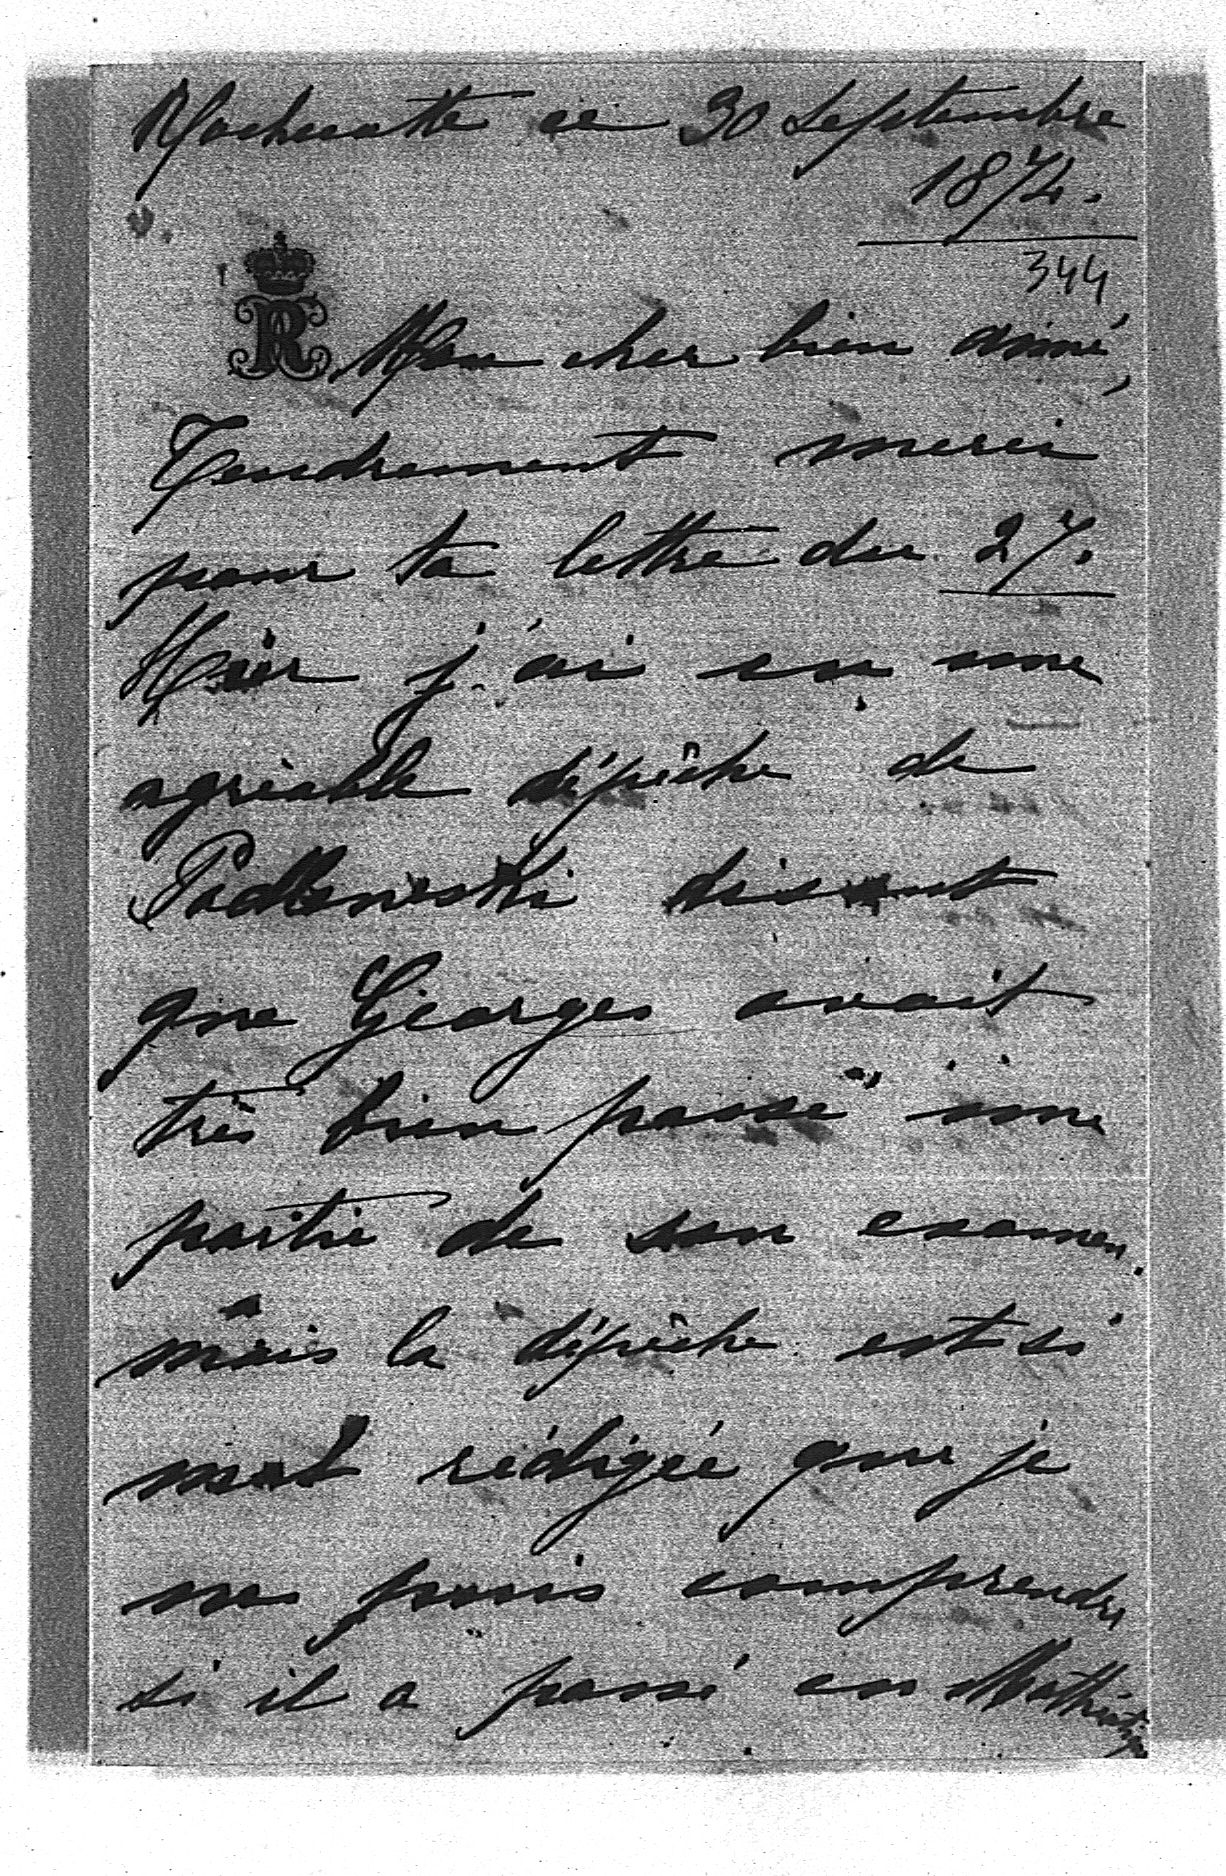 ce 30 Septembre
1874.
344
R Mon cher bien aimé,
Tendrement merci
pour ta lettre du 27.
Hier j'ai eu une
agréable dépêche de
disant
que Georges avait
très bien passé une
partie de son examen.
mais la dépêche est si
mal rédigée que je
ne puis comprendre
si il a passé en